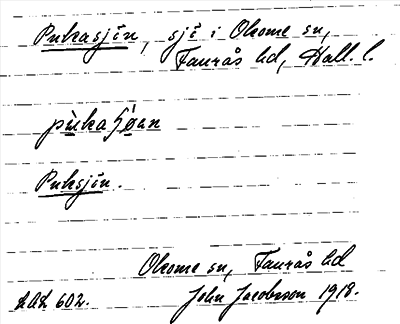 Pukasjön, sjö i Okome sn,
Faurås hd, Hall. l.
pukaʃöan
Puksjön.
Okome sn, Faurås hd
LAL 602. John Jacobsson 1918.